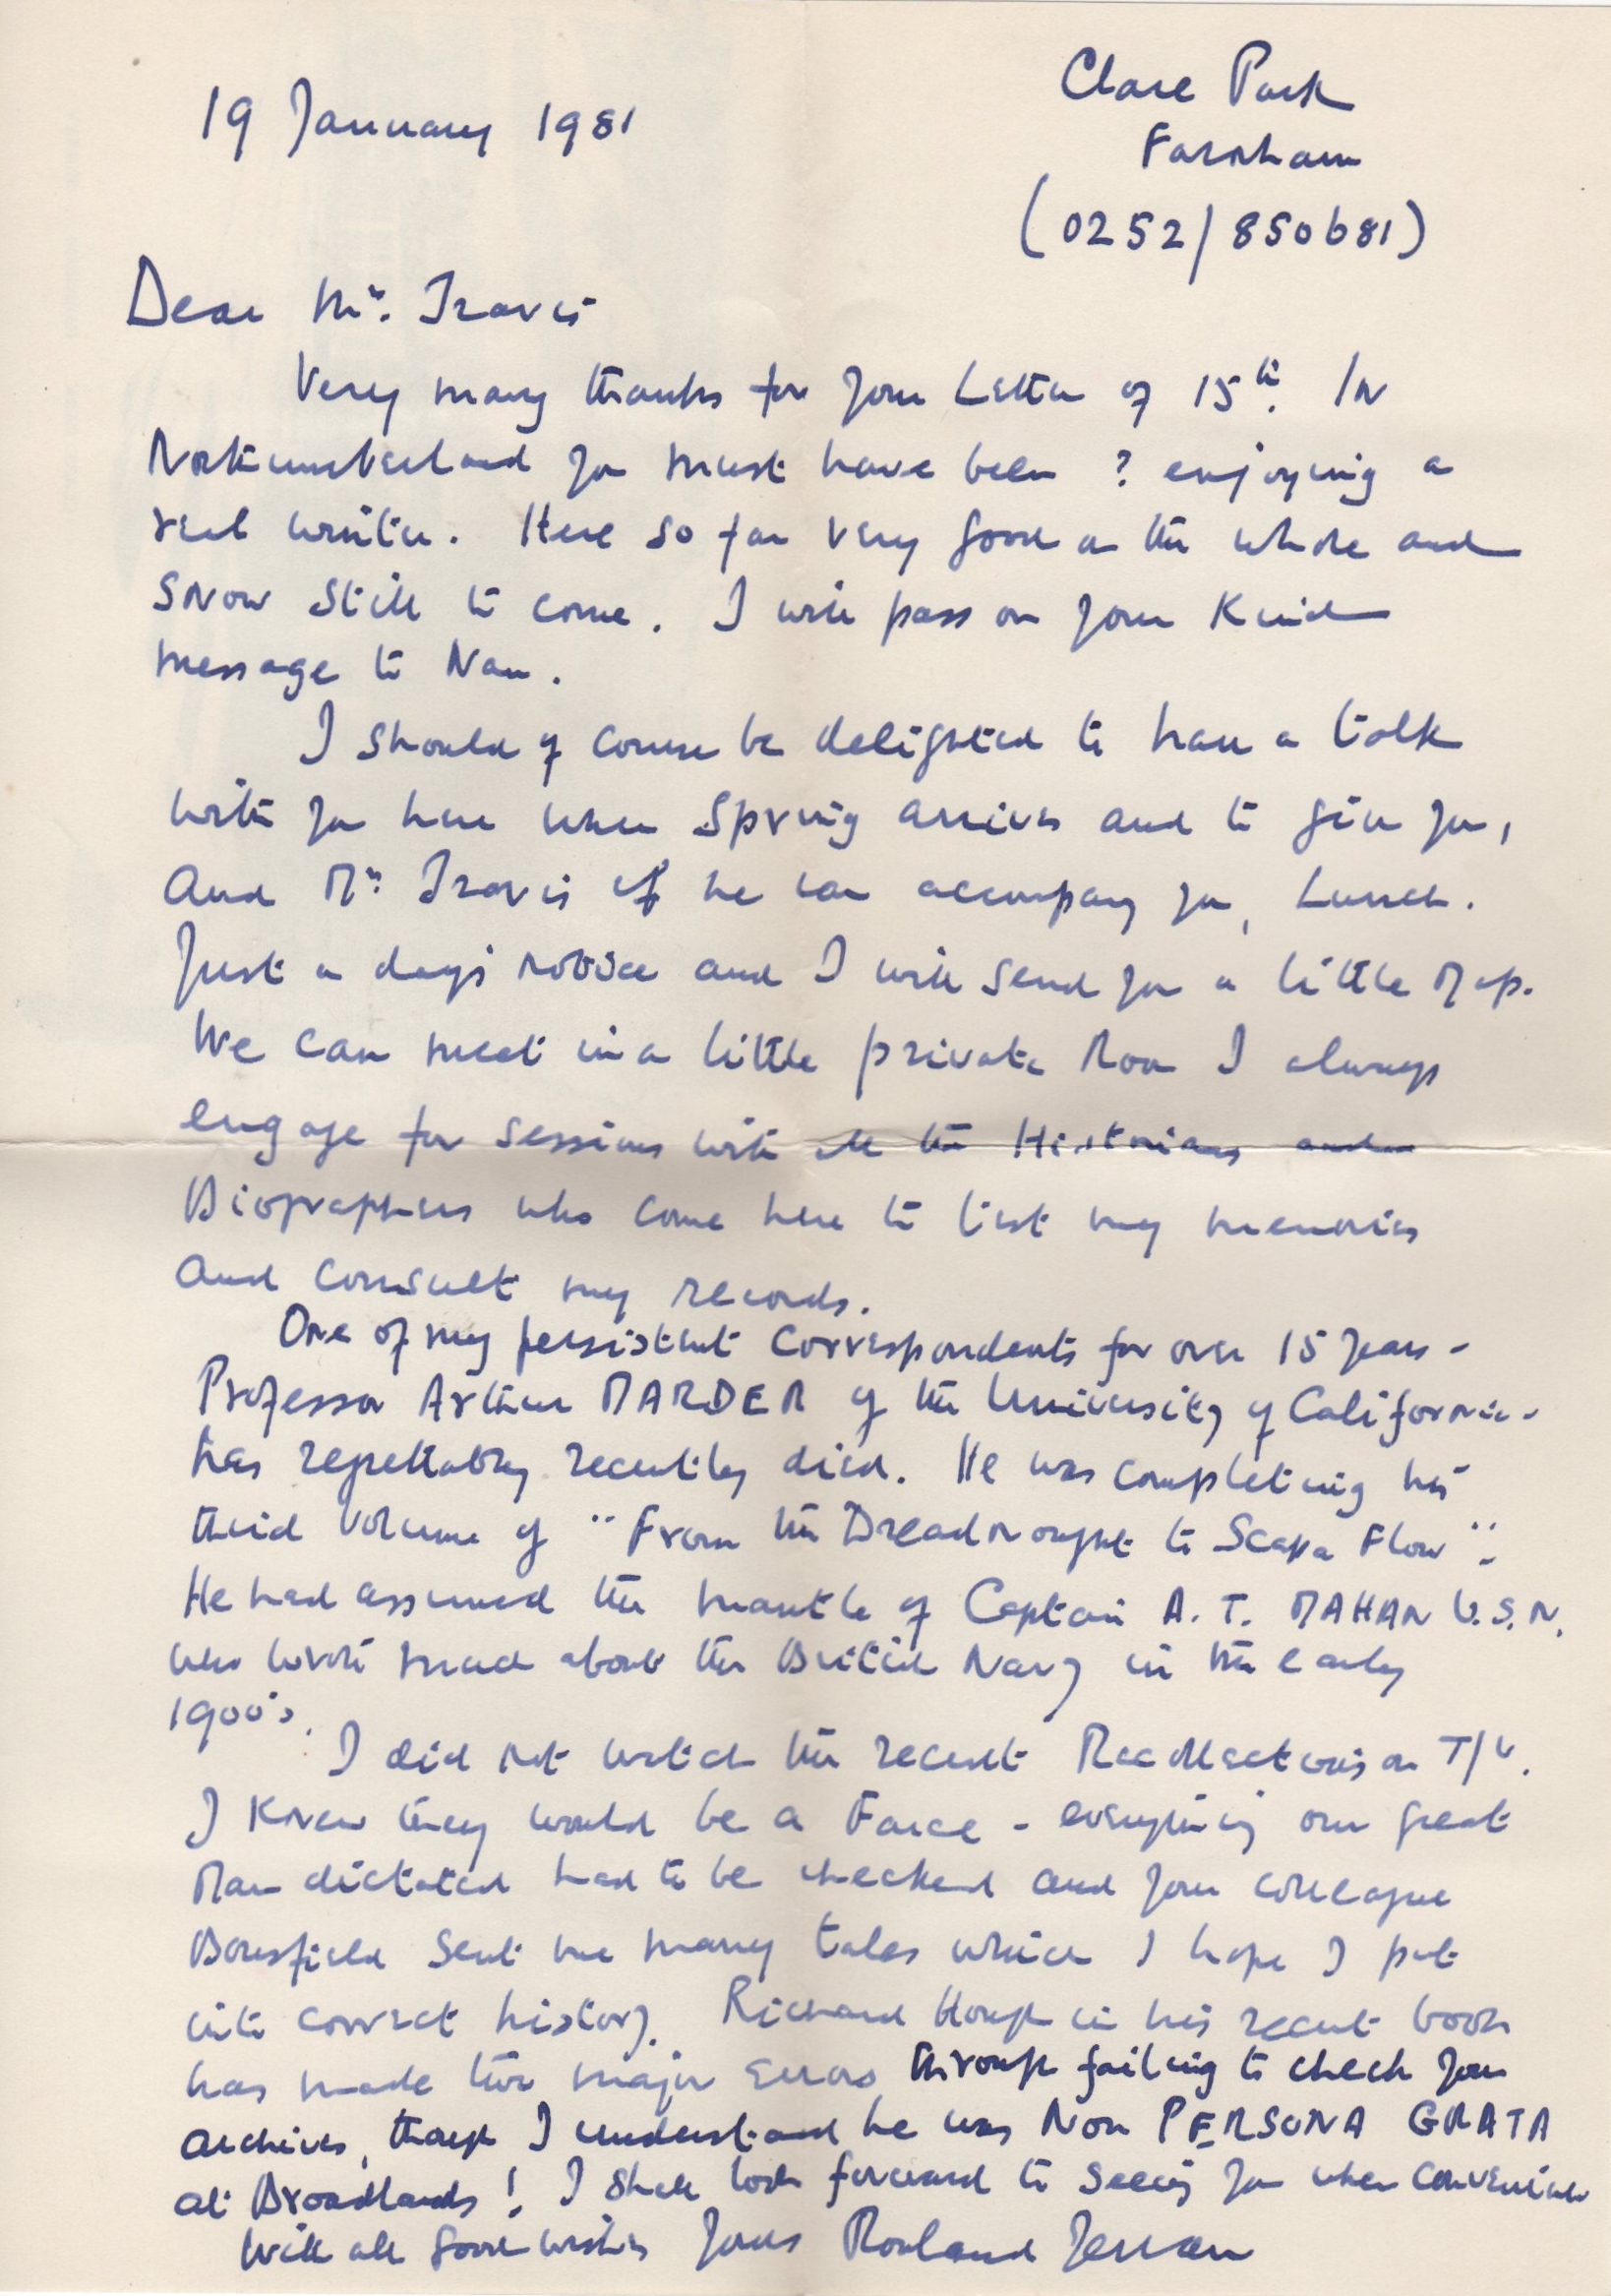 19 January 1981
Clare Park
Farnham
(0252/850681)
Dear Mrs. Travis
Very many thanks for your Letter of 15th. In
Northumberland you must have been ? enjoying a
real winter. Here so far very good on the whole and
Snow still to come. I will pass on your kind
message to Nan.
I should of course be delighted to have a talk
with you here when Spring arrives and to give you,
and Mr. Travis if he can accompany you, Lunch.
Just a days notice and I will send you a little Map.
We can meet in a little private Room I always
engage for sessions with all the Historians and
Biographers who come here to test my memories
and consult my records.
One of my persistent correspondents for over 15 years -
Professor Arthur MARDER of the University of California -
has regrettably recently died. He was completing his
third volume of "From the Dreadnought to Scapa Flow".
He had assumed the mantle of Captain A. T. MAHAN U.S.N.
who wrote much about the British Navy in the early
1900's.
I did not watch the recent Recollections on T/V.
I knew they would be a Farce - everything our great
Man dictated had to be checked and your colleague
Bousfield sent me many tales which I hope I put
into correct history. Richard Hough in his recent book
has made two major errors through failing to check your
archives, though I understand he was Non PERSONA GRATA
at Broadlands! I shall look forward to seeing you when convenient
With all good wishes Yours Rowland Jerram